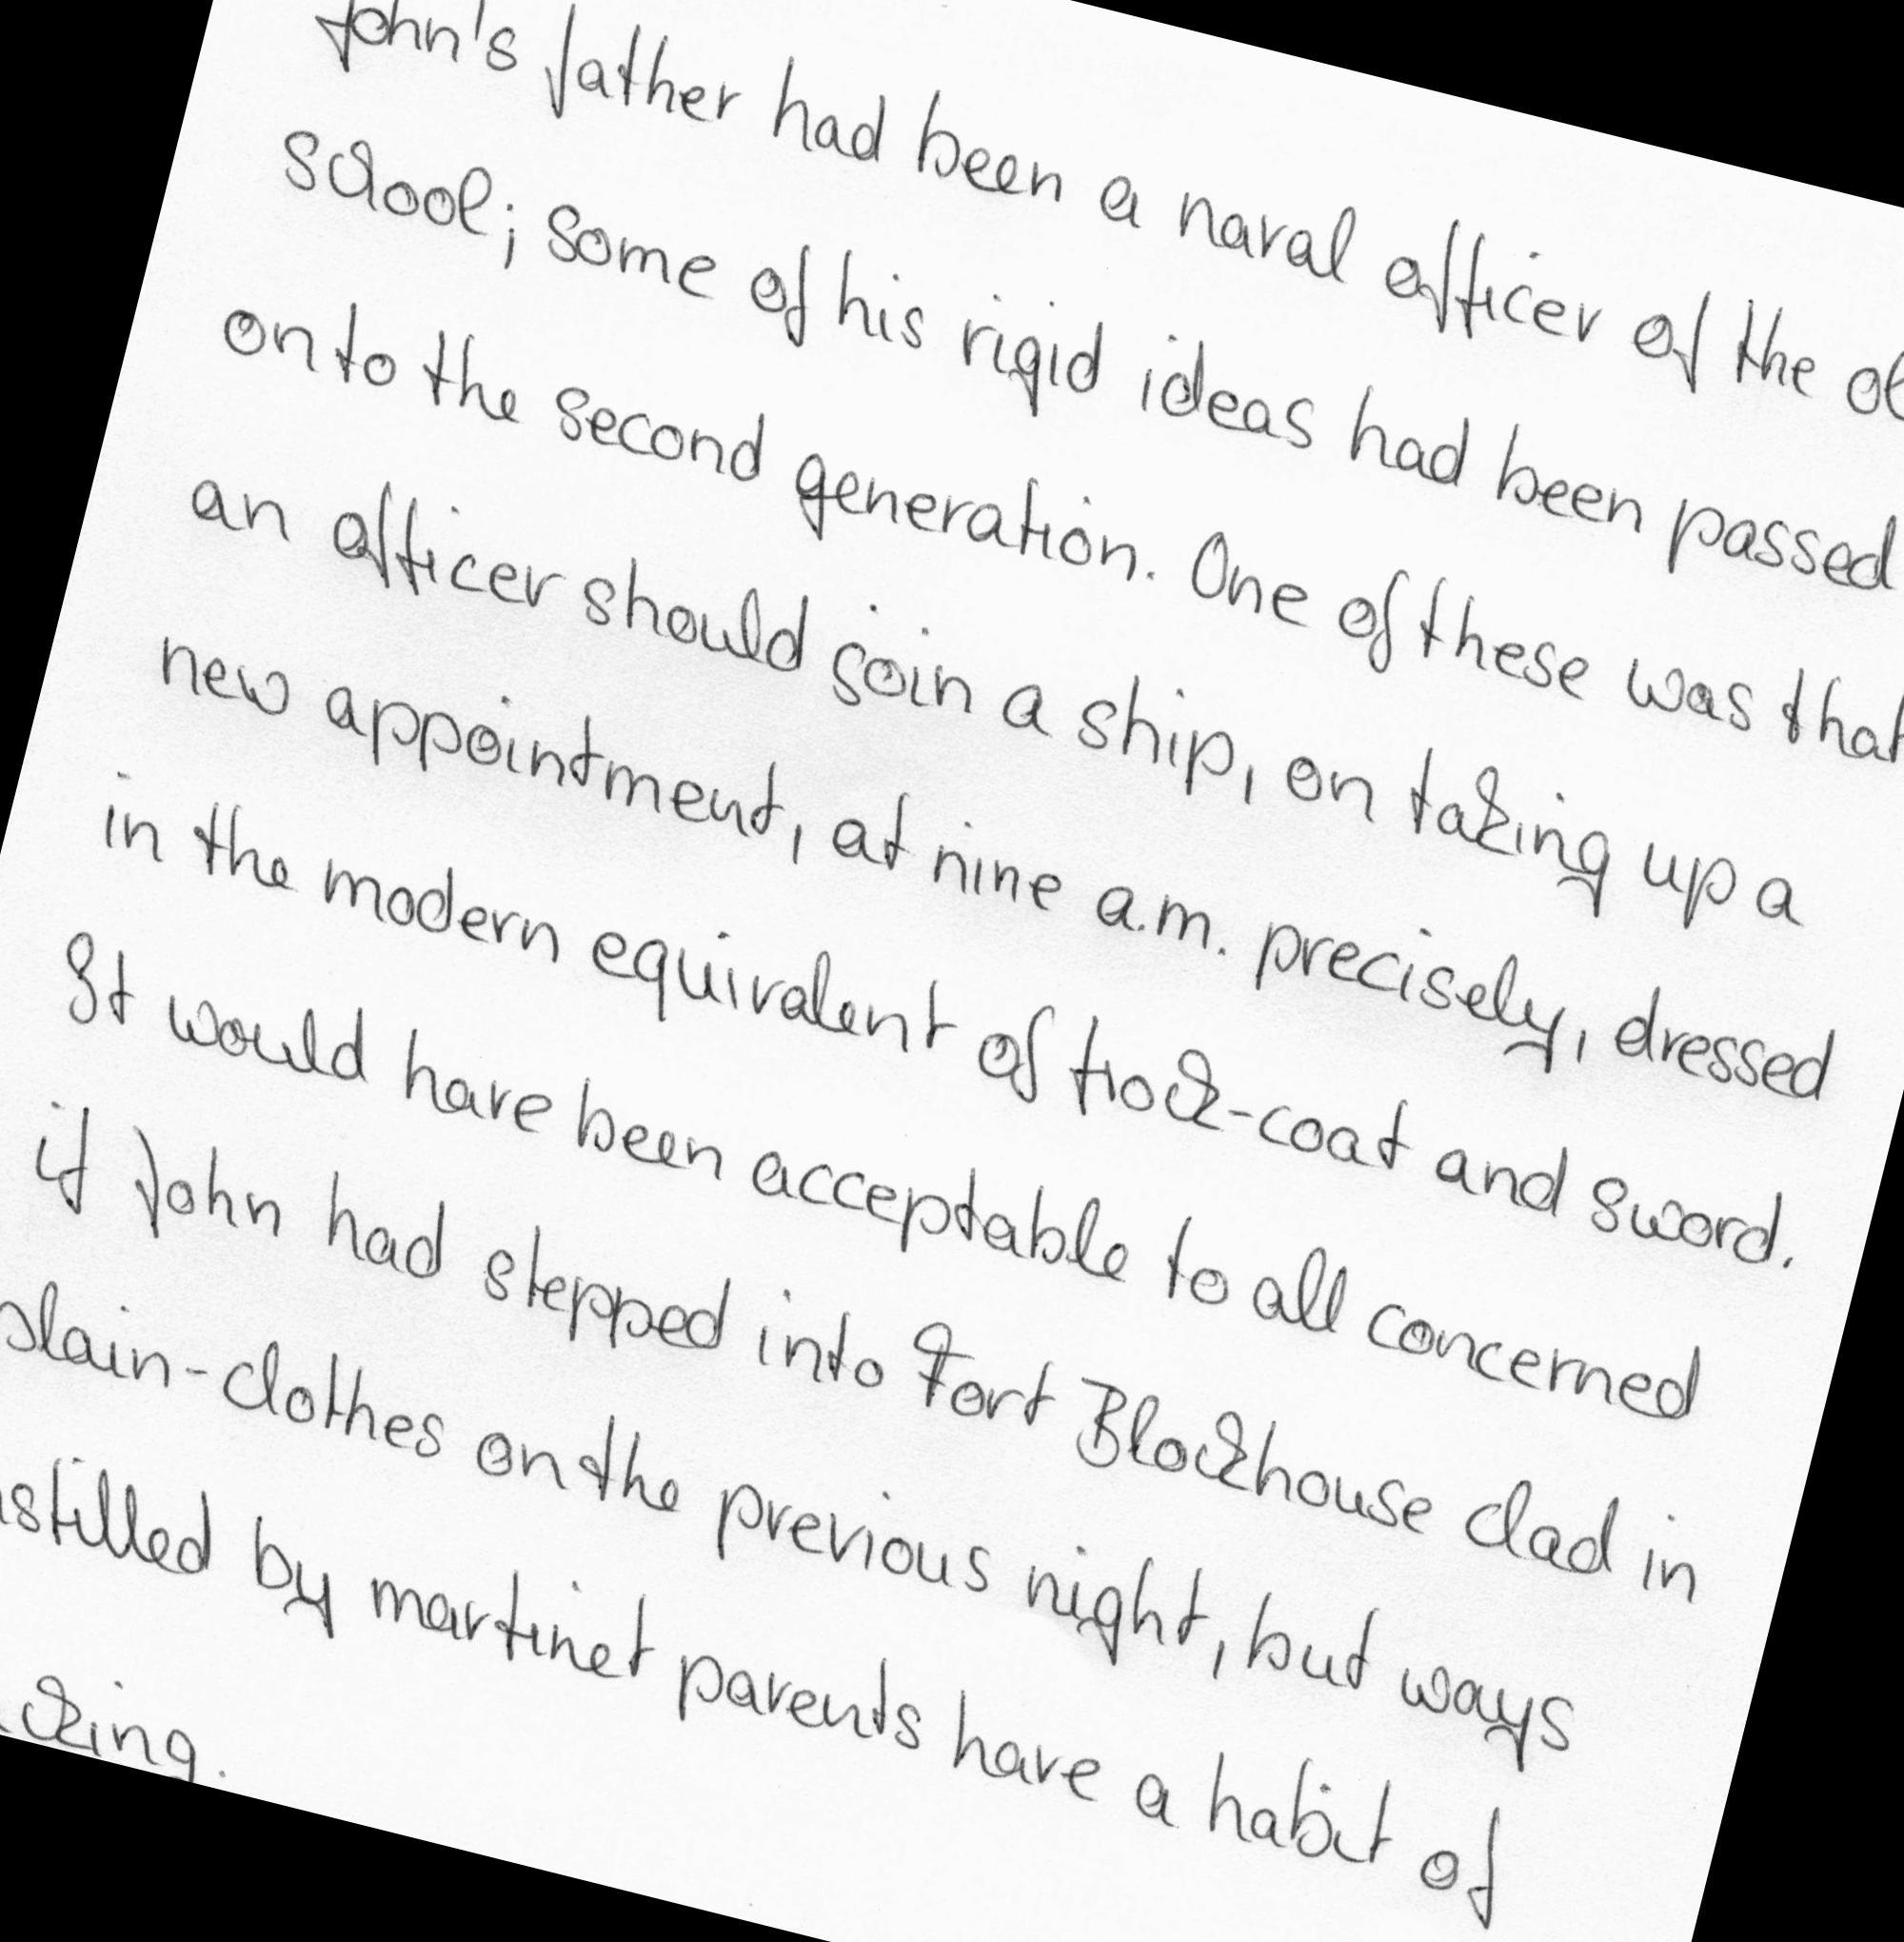 John's father had been a naval officer of the
school; some of his rigid ideas had been passed
on to the second generation. One of these was that
an officer should join a ship, on taking up a
new appointment, at nine a.m. precisely, dressed
in the modern equivalent of frock-coat and sword.
It would have been acceptable to all concerned
if John had stepped into Fort Blockhouse clad in
plain-clothes on the previous night, but ways
instilled by martinet parents have a habit of